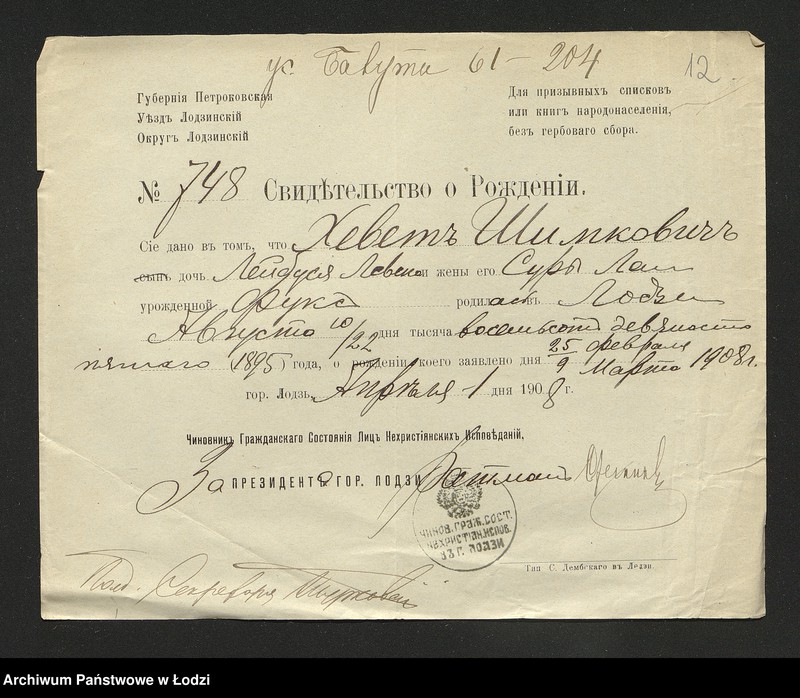 ук. Бавути 61 – 204
12.
Губернія Петроковская
Уѣздъ Лодзинскій
Округъ Лодзинскій
Для призывныхъ списковъ
или книгъ народонаселенія,
безъ гербоваго сбора.
№ 748 Свидѣтельство о Рожденіи.
Сіе дано въ томъ, что Хеветъ Шимковичъ
сынъ дочь Лейбуся и жены его Суры Лаи
урожденной Фукс родилась въ Лодзи
Августа 10/22 дня тысяча восемьсотъ девяносто
пятаго (1895) года, о рожденіи коего заявлено дня 25 февраля
9 Марта 1908 г.
гор. Лодзь, Апрѣля 1 дня 1908 г.
Чиновникъ Гражданскаго Состоянія Лицъ Нехристіянскихъ Исповѣданій,
За ПРЕЗИДЕНТА ГОР. ЛОДЗИ Ратманъ
ЧИНОВ. ГРАЖ. СОСТ.
НЕХРИСТІАН. ИСПОВ.
ВЪ Г. ЛОДЗИ
Тип. С. Дембскаго въ Лодзи.
Секретаря
Archiwum Państwowe w Łodzi